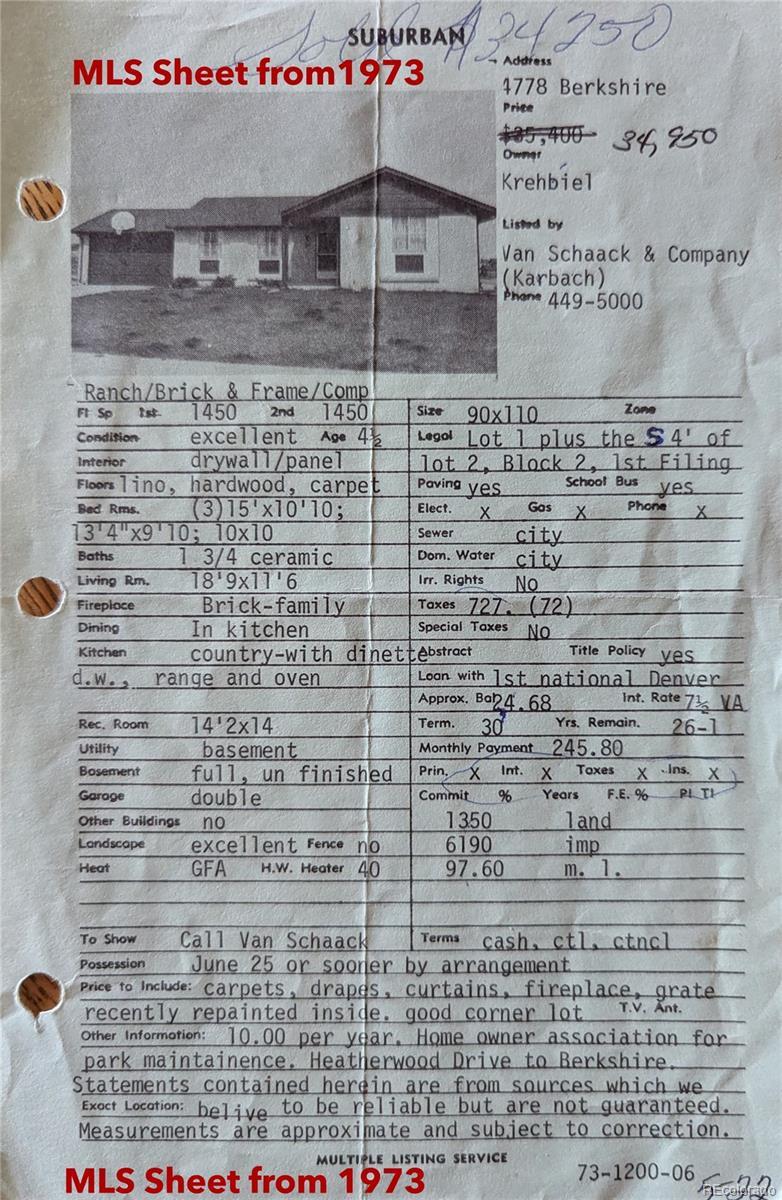 Sold $34250
SUBURBAN
MLS Sheet from1973
Address
4778 Berkshire
Price
$35,400 34,950
Owner
Krehbiel
Listed by
Van Schaack & Company
(Karbach)
Phone 449-5000
Ranch/Brick & Frame/Comp
Fl Sp 1st 1450 2nd 1450
Condition excellent Age 4½
Interior drywall/panel
Floors lino, hardwood, carpet
Bed Rms. (3)15'x10'10;
13'4"x9'10; 10x10
Baths 1 3/4 ceramic
Living Rm. 18'9x11'6
Fireplace Brick-family
Dining In kitchen
Kitchen country-with dinette
d.w., range and oven
Rec. Room 14'2x14
Utility basement
Basement full, un finished
Garage double
Other Buildings no
Landscape excellent Fence no
Heat GFA H.W. Heater 40
Size 90x110 Zone
Legal Lot 1 plus the S 4' of
lot 2, Block 2, 1st Filing
Paving yes School Bus yes
Elect. x Gas x Phone x
Sewer city
Dom. Water city
Irr. Rights No
Taxes 727. (72)
Special Taxes No
Abstract Title Policy yes
Loan with 1st national Denver
Approx. Bal 24.68 Int. Rate 7½ VA
Term. 30 Yrs. Remain. 26-1
Monthly Payment 245.80
Prin. x Int. x Taxes x Ins. x
Commit % Years F.E. % PI TI
1350 land
6190 imp
97.60 m. l.
To Show Call Van Schaack
Terms cash, ctl, ctncl
Possession June 25 or sooner by arrangement
Price to Include: carpets, drapes, curtains, fireplace, grate
recently repainted inside. good corner lot T.V. Ant.
Other Information: 10.00 per year. Home owner association for
park maintainence. Heatherwood Drive to Berkshire.
Statements contained herein are from sources which we
Exact Location: belive to be reliable but are not guaranteed.
Measurements are approximate and subject to correction.
MULTIPLE LISTING SERVICE
73-1200-06
MLS Sheet from 1973
5-22
REcolorado